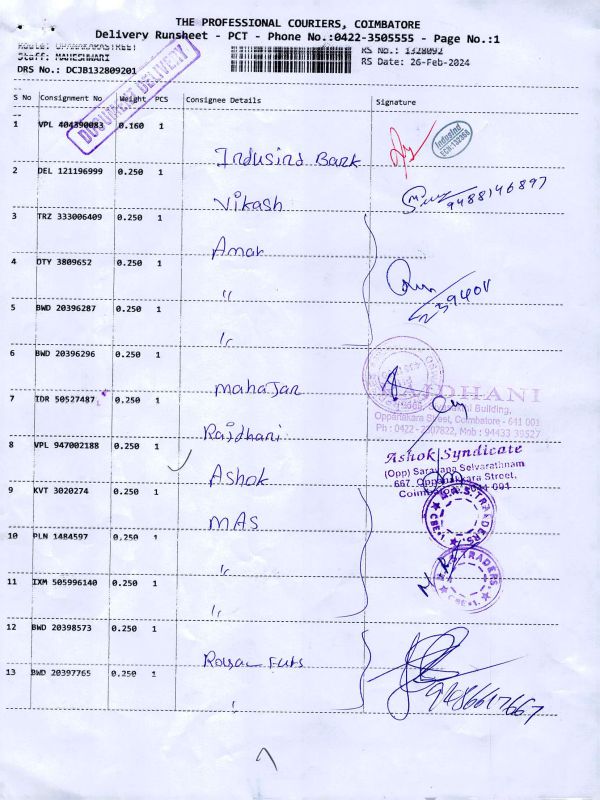 THE PROFESSIONAL COURIERS, COIMBATORE
Delivery Runsheet - PCT - Phone No.:0422-3505555 - Page No.:1
Staff: MAHESHWARI
RS No.: 1328092
DRS No.: DCJB132809201
RS Date: 26-Feb-2024
DOCUMENT DELIVERY
S No Consignment No Weight PCS Consignee Details Signature
1 VPL 404390083 0.160 1 Indusind Bank
Indusind
2 DEL 121196999 0.250 1 Vikash 9488146897
3 TRZ 333006409 0.250 1 Amar
4 DTY 3809652 0.250 1 "
5 BWD 20396287 0.250 1 "
6 BWD 20396296 0.250 1 mahajan
7 IDR 50527487 0.250 1 Rajdhani
RAJDHANI
Building,
Oppanakara Street, Coimbatore - 641 001
Mob : 94433 39527
8 VPL 947002188 0.250 1 Ashok
Ashok Syndicate
(Opp) Saravana Selvarathnam
667, Oppanakkara Street,
9 KVT 3020274 0.250 1 MAS
M.A.S. TRADERS CBE-1
10 PLN 1484597 0.250 1 "
TRADERS CBE-1.
11 IXM 505996140 0.250 1 "
12 BWD 20398573 0.250 1
13 BWD 20397765 0.250 1 "
9486617667